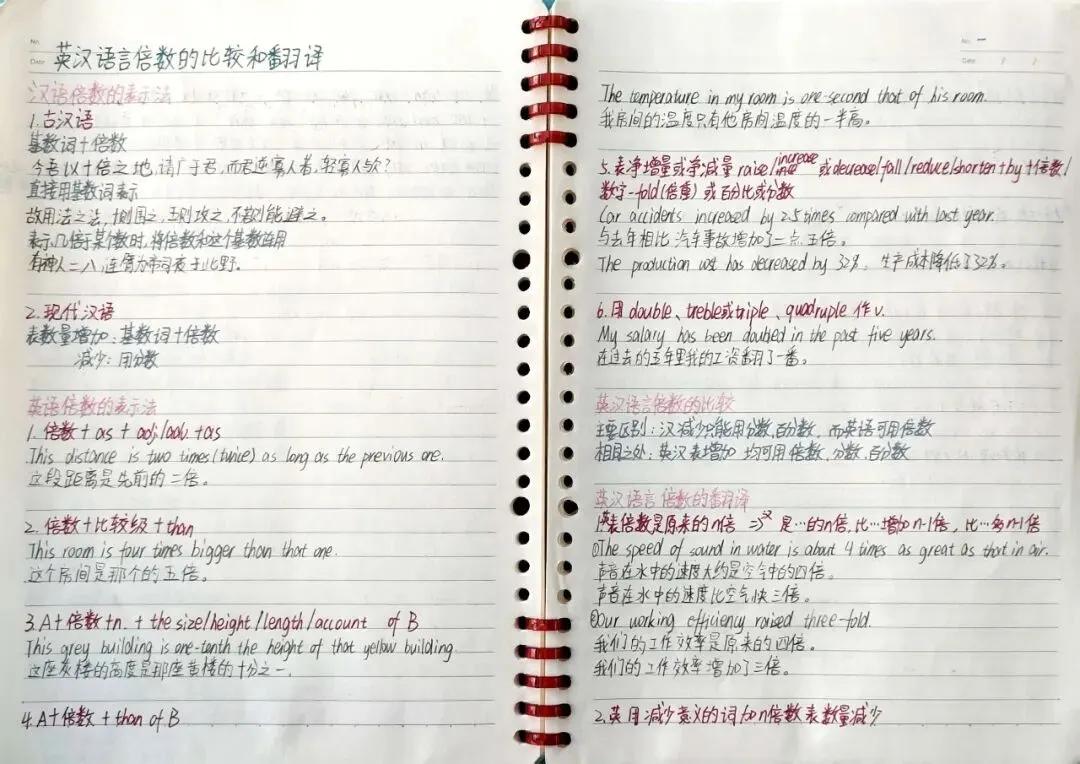 No.
Date
英汉语言倍数的比较和翻译
汉语倍数的表示法
1.古汉语
基数词+倍数
今吾以十倍之地,请广于君,而君逆寡人者,轻寡人欤?
直接用基数词表示
故用法之法,十则围之,五则攻之,不若则能避之。
表示几倍于某个数时,将倍数和这个基数连用
有神人二八,连臂为帝司夜于此野。
2.现代汉语
表数量增加:基数词+倍数
减少:用分数
英语倍数的表示法
1.倍数+as+adj/adv.+as
This distance is two times(twice) as long as the previous one.
这段距离是先前的二倍。
2.倍数+比较级+than
This room is four times bigger than that one.
这个房间是那个的五倍。
3.A+倍数+n.+the size/height/length/account of B
This grey building is one-tenth the height of that yellow building
这座灰楼的高度是那座黄楼的十分之一.
4.A+倍数+than of B
No. 一
Date / /
The temperature in my room is one-second that of his room.
我房间的温度只有他房间温度的一半高。
5.表净增量或净减量 raise/increase或decrease/fall/reduce/shorten+by+倍数/
数字-fold(倍量)或百分比或分数
Car accidents increased by 2.5 times compared with last year.
与去年相比汽车事故增加了二点五倍。
The production cost has decreased by 32%. 生产成本降低了32%。
6.用double、treble或triple、quadruple作v.
My salary has been doubled in the past five years.
在过去的五年里我的工资翻了一番。
英汉语言倍数的比较
主要区别:汉减少只能用分数,百分数,而英语可用倍数
相同之处:英汉表增加均可用倍数,分数,百分数
英汉语言倍数的翻译
1.英表倍数是原来的n倍⇒汉 是…的n倍,比…增加n-1倍,比…多n-1倍
①The speed of sound in water is about 4 times as great as that in air.
声音在水中的速度大约是空气中的四倍。
声音在水中的速度比空气快三倍。
②Our working efficiency raised three-fold.
我们的工作效率是原来的四倍。
我们的工作效率增加了三倍。
2.英用减少意义的词加n倍数表数量减少